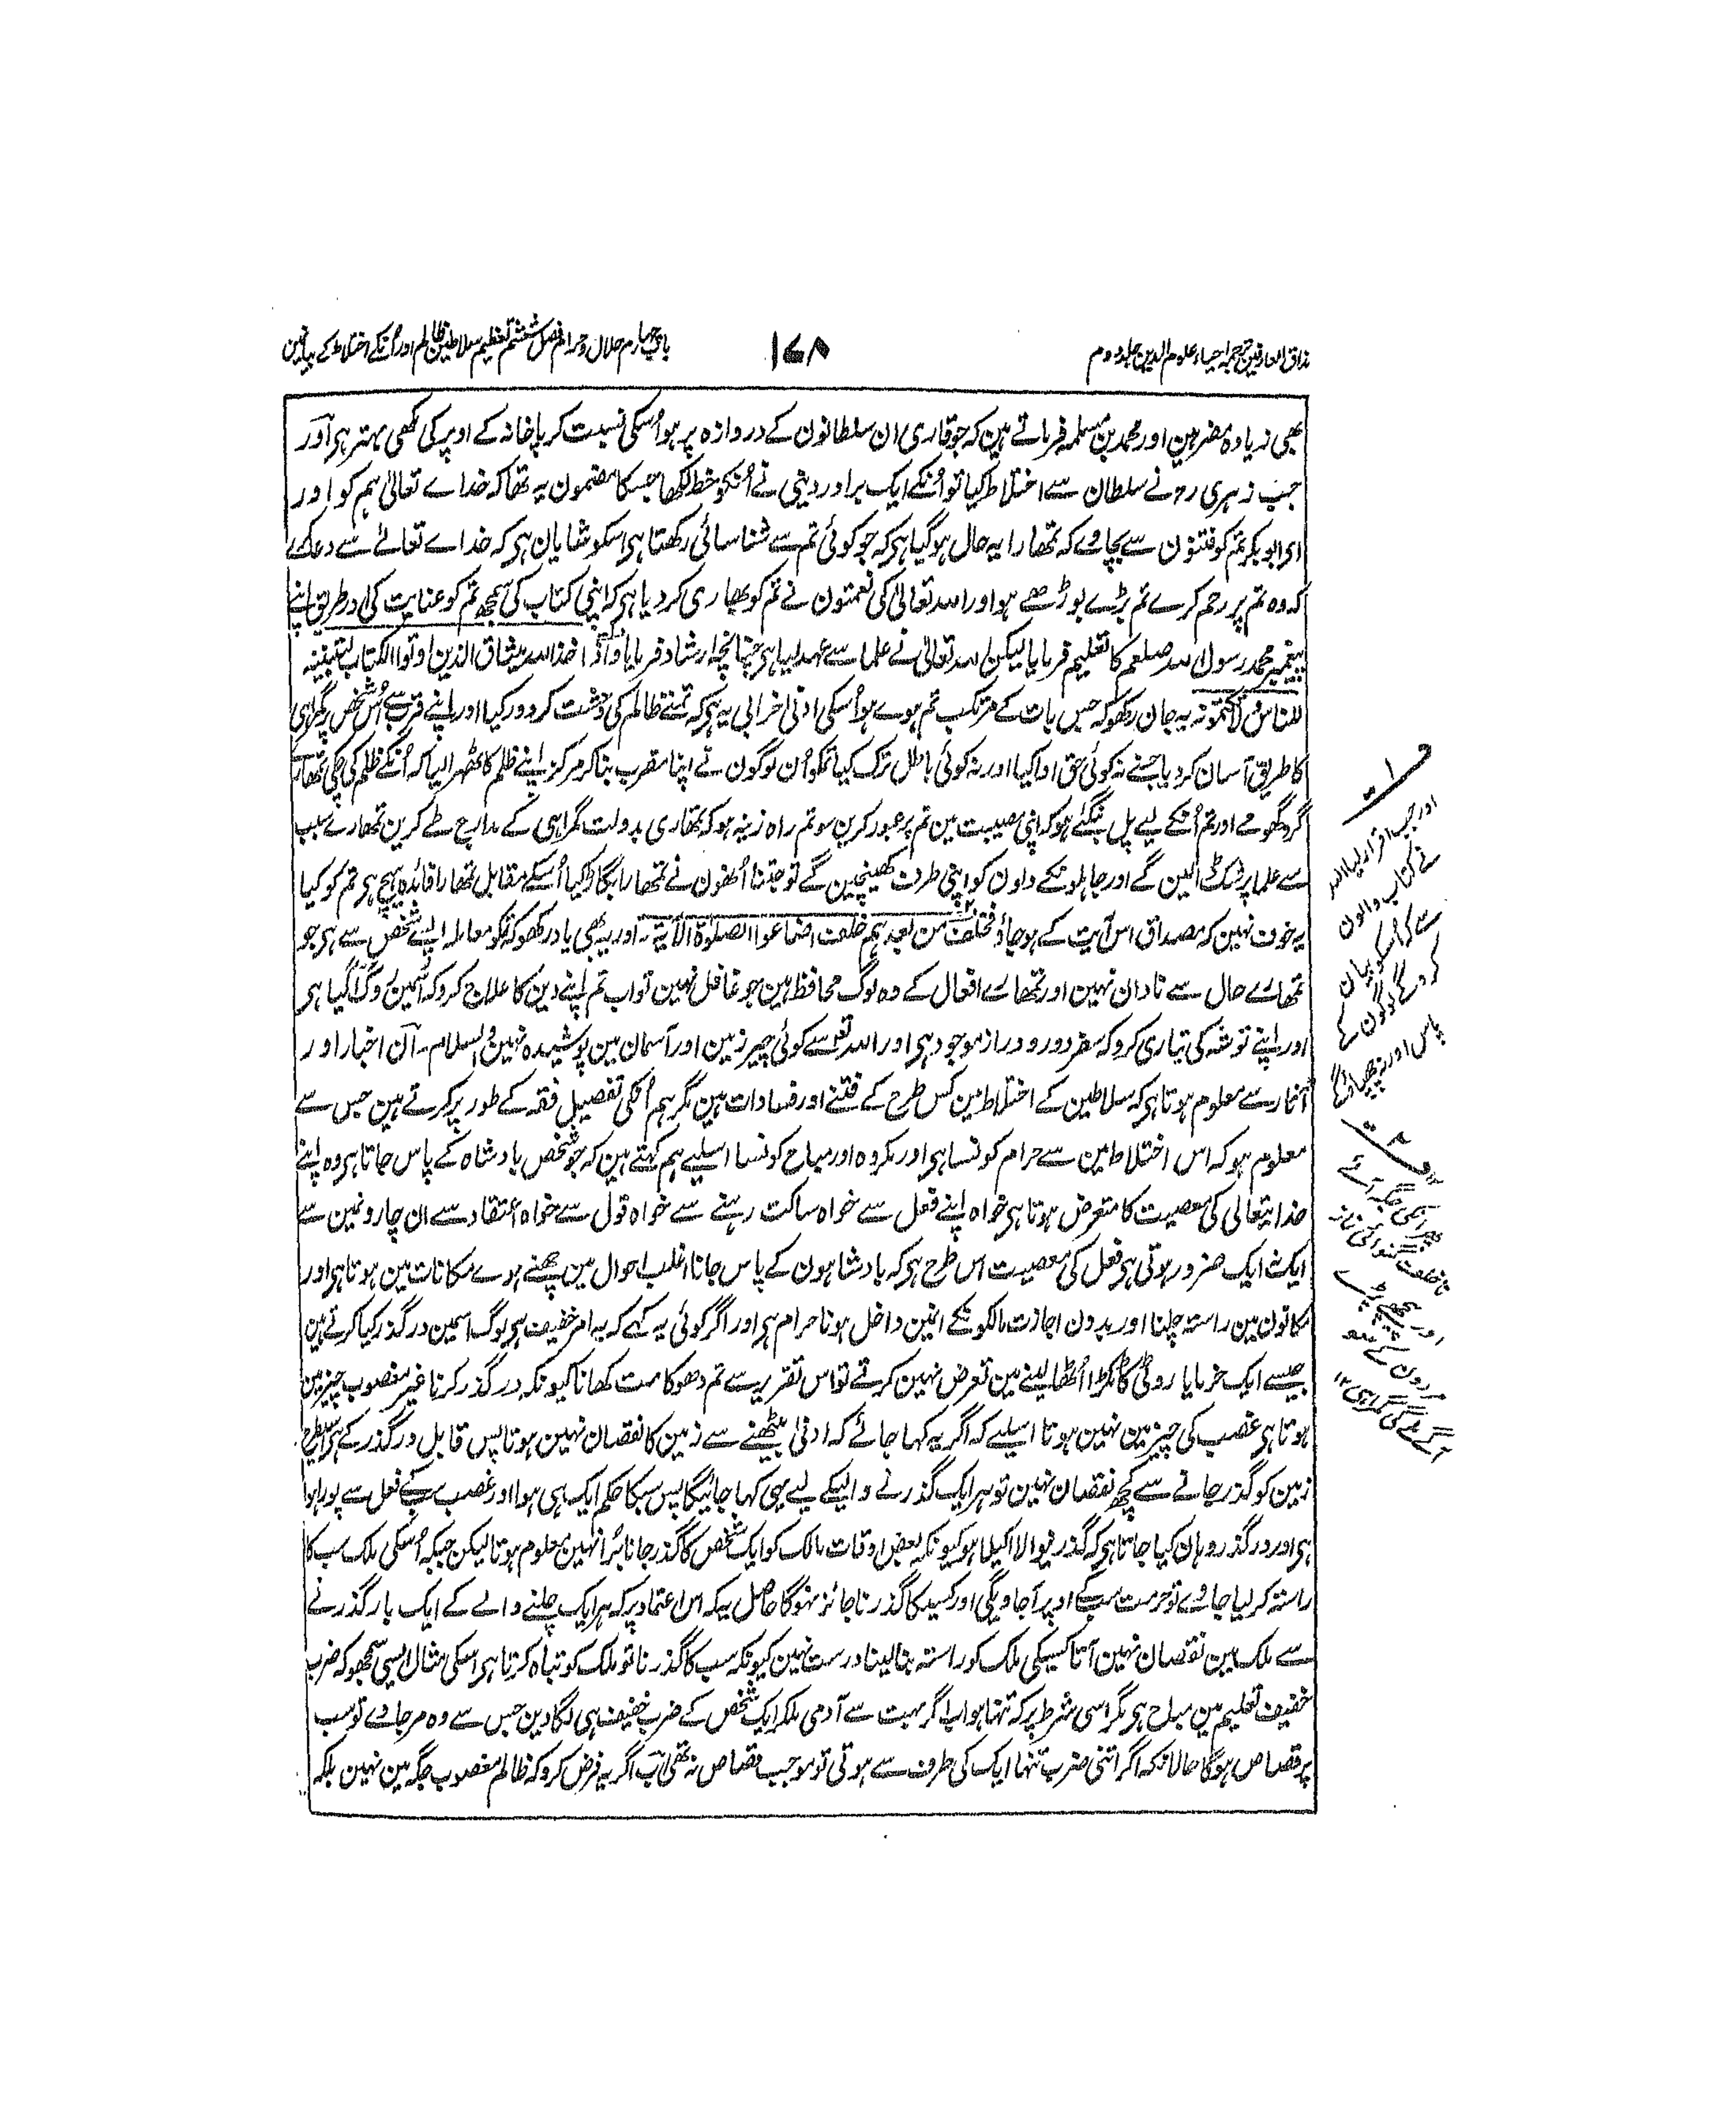 مذاق العارفین ترجمہ احیاء علوم الدین جلد دوم
۱۷۸
باب چہارم حلال و حرام فصل ششم تعظیم سلاطین ظالم اور اُنکے اختلاط کے بیانمین
بھی زیادہ مضر ہین اور محمد بن مسلمہ فرماتے ہین کہ جو قاری ان سلطانون کے دروازہ پر ہو اُسکی نسبت کر پاخانہ کے اوپر کی مکھی بہتر ہی اور
جب زہری رح نے سلطان سے اختلاط کیا تو اُنکے ایک برادر دینی نے اُنکو خط لکھا جسکا مضمون یہ تھا کہ خداے تعالیٰ ہم کو اور
ای ابو بکر تمکو فتنون سے بچاوے کہ تمھارا یہ حال ہوگیا ہی کہ جو کوئی تم سے شناسائی رکھتا ہی اسکو شایان ہی کہ خداے تعالےٰ سے دعا کرے
کہ وہ تم پر رحم کرے تم بڑے بوڑھے ہو اور اللہ تعالیٰ کی نعمتون نے تم کو بھاری کردیا ہی کہ اپنی کتاب کی سمجھ تم کو عنایت کی اور طریق اپنے
پیغمبر محمد رسول اللہ صلعم کا تعلیم فرمایا لیکن اللہ تعالیٰ نے علما سے عہد لیا ہی چنانچہ ارشاد فرمایا واذ اخذ اللہ میثاق الذین اوتوا الکتاب لتبیننہ
للناس ولا تکتمونہ یہ جان رکھو کہ جس بات کے مرتکب تم ہوے ہو اُسکی ادنیٰ خرابی یہ ہی کہ تمنے ظالم کی وحشت کو دور کیا اور اپنے قرب سے اُس شخص پر گمراہی
کا طریق آسان کردیا جسنے نہ کوئی حق ادا کیا اور نہ کوئی باطل ترک کیا تمکو اُن لوگون نے اپنا مقرب بناکر مرکز اپنے ظلم کا ٹھہرالیا کہ اُنکے ظلم کی چکی تمھارے
گرد گھومے اور تم اُنکے لیے پل بنگئے ہو کہ اپنی مصیبت مین تم پر عبور کرین سو تم راہ زینہ ہو کہ تمھاری بدولت گمراہی کے مدارج طے کرین تمھارے سبب
سے علما پر شک ڈالین گے اور جاہلونکے دلون کو اپنی طرف کھینچین گے تو جتنا اُنھون نے تمھارا بگاڑ کیا اُسکے مقابل تمھارا فائدہ ہیچ ہی تم کو کیا
یہ خوف نہین کہ مصداق اس آیت کے ہوجاؤ فخلف من بعدہم خلف اضاعوا الصلوٰۃ الآیۃ۔ اور یہ بھی یاد رکھو کہ تمکو معاملہ ایسے شخص سے ہی جو
تمھارے حال سے نادان نہین اور تمھارے افعال کے وہ لوگ محافظ ہین جو غافل نہین تو اب تم اپنے دین کا علاج کرو کہ اُسمین روگ آگیا ہی
اور اپنے توشہ کی تیاری کرو کہ سفر دور و دراز موجود ہی اور اللہ تعہ سے کوئی چیز زمین اور آسمان مین پوشیدہ نہین والسلام۔ ان اخبار اور
آثار سے معلوم ہوتا ہی کہ سلاطین کے اختلاط مین کس طرح کے فتنے اور فسادات ہین مگر ہم اُنکی تفصیل فقہ کے طور پر کرتے ہین جس سے
معلوم ہو کہ اس اختلاط مین سے حرام کونسا ہی اور مکروہ اور مباح کونسا اسلیے ہم کہتے ہین کہ جو شخص بادشاہ کے پاس جاتا ہی وہ اپنے
خدایتعالی کی معصیت کا متعرض ہوتا ہی خواہ اپنے فعل سے خواہ ساکت رہنے سے خواہ قول سے خواہ اعتقاد سے ان چارونمین سے
ایک نہ ایک ضرور ہوتی ہی فعل کی معصیت اس طرح ہی کہ بادشاہون کے پاس جانا اغلب احوال مین چھنے ہوے مکانات مین ہوتا ہی اور
مکانون مین راستہ چلنا اور بدون اجازت مالکونکے انین داخل ہونا حرام ہی اور اگر کوئی یہ کہے کہ یہ امر خفیف ہی لوگ اسمین درگذر کیا کرتے ہین
جیسے ایک خرما یا روٹی کا ٹکڑا اُٹھا لینے مین تعرض نہین کرتے تو اس تقریر سے تم دھوکا مت کھانا کیونکہ درگذر کرنا غیر مغصوب چیز مین
ہوتا ہی غصب کی چیز مین نہین ہوتا اسلیے کہ اگر یہ کہا جائے کہ ادنیٰ بیٹھنے سے زمین کا نقصان نہین ہوتا پس قابل درگذر کے ہی اسیطرح
زمین کو گذر جانے سے کچھ نقصان نہین تو ہر ایک گذرنے والیکے لیے یہی کہا جائیگا پس سبکا حکم ایک ہی ہوا اور غصب سب کے فعل سے پورا ہوا
ہی اور درگذر وہان کیا جاتا ہی کہ گذرنیوالا اکیلا ہو کیونکہ بعض اوقات مالک کو ایک شخص کا گذر جانا بُرا نہین معلوم ہوتا لیکن جبکہ اُسکی ملک سب کا
راستہ کرلیا جاوے تو حرمت سب کے اوپر آجاویگی اور کسیکا گذرنا جائز نہوگا حاصل یہ کہ اس اعتماد پر کہ ہر ایک چلنے والے کے ایک بار گذرنے
سے ملک مین نقصان نہین آتا کسیکی ملک کو راستہ بنالینا درست نہین کیونکہ سب کا گذرنا تو ملک کو تباہ کرتا ہی اسکی مثال ایسی سمجھو کہ ضرب
خفیف تعلیم مین مباح ہی مگر اسی شرط پر کہ تنہا ہو اب اگر بہت سے آدمی ملکر ایک شخص کے ضرب خفیف ہی لگادین جس سے وہ مرجاوے تو سب
پر قصاص ہوگا حالانکہ اگر اتنی ضرب تنہا ایک کی طرف سے ہوتی تو موجب قصاص نہ تھی اب اگر یہ فرض کرو کہ ظالم مغصوب جگہ مین نہین بلکہ
ف۱
اور جب اقرار لیا اللہ
نے کتاب والون
سے کہ اسکو بیان
کروگے لوگون کے
پاس اور نہ چھپاؤگے
ف۲
پھر اُنکی جگہ آئے
ناخلف گنوائی نماز
اور پیچھے پڑے
مزون کے سو
آگے ملےگی گمراہی ۱۲